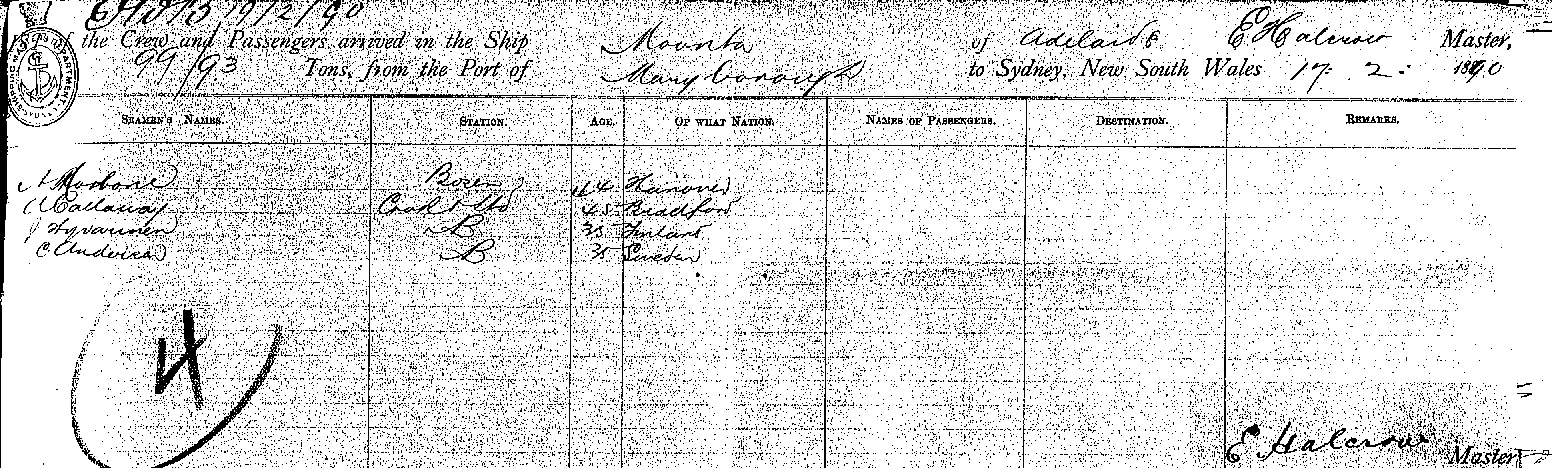 19/2/90
of the Crew and Passengers arrived in the Ship Moonta of Adelaide E Halcrow Master,
99/93 Tons, from the Port of Maryborough to Sydney, New South Wales 17: 2: 1890
SEAMEN'S NAMES. STATION. AGE. OF WHAT NATION. NAMES OF PASSENGERS. DESTINATION. REMARKS.
Bosen 44 Hanover
Callaway Cook & Std 45 Bradford
J Hyvarinen AB 35 Finland
C AB 35 Sweden
4
E Halcrow Master